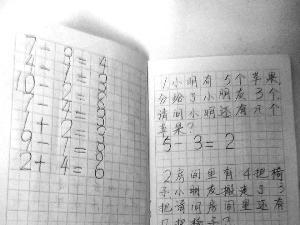 7 - 3 = 4
10 - 2 = 8
2 + 4 = 6
1 小明有 5个苹果,
分给了小朋友 3个,
请问小明还有几个
苹果?
5 - 3 = 2
2 房间里有 4把椅
子小朋友搬走了 3
把请问房间里还有
几把椅子?